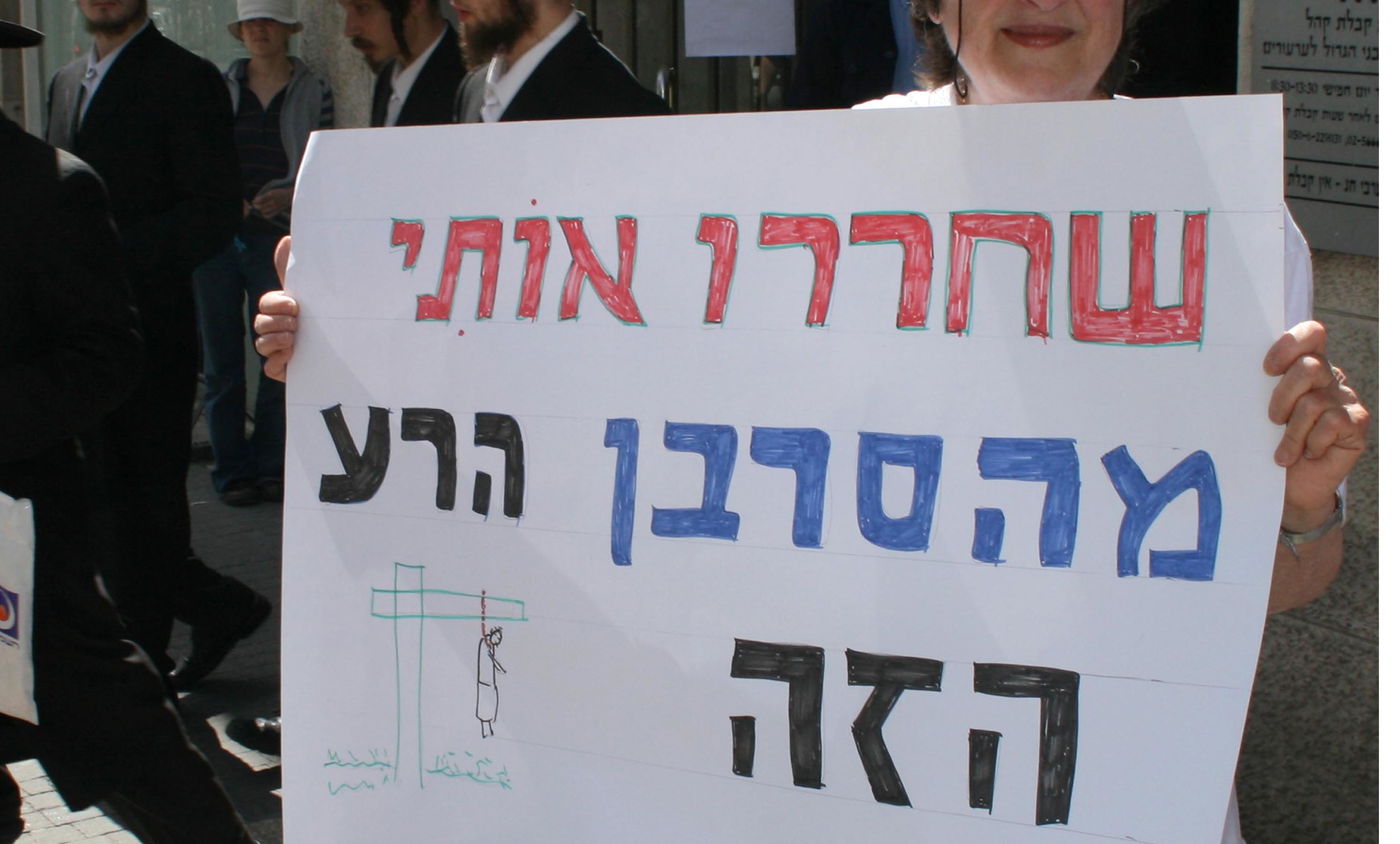 שחררו אותי
מהסרבן הרע
הזה
קבלת קהל
בני הגדול לערעורים
יום חפישי 8:30-13:30
לאחר שעות קבלת
חג - אין קבלת